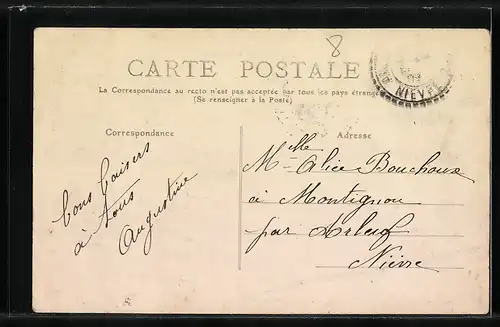 8
CARTE POSTALE
NIÈVRE
La Correspondance au recto n'est pas acceptée par tous les pays étrangers
(Se renseigner à la Poste)
Correspondance
Adresse
Bons baisers
à tous
Augustine
Mlle Alice Bouchoux
à Montignon
par Arleuf
Nièvre